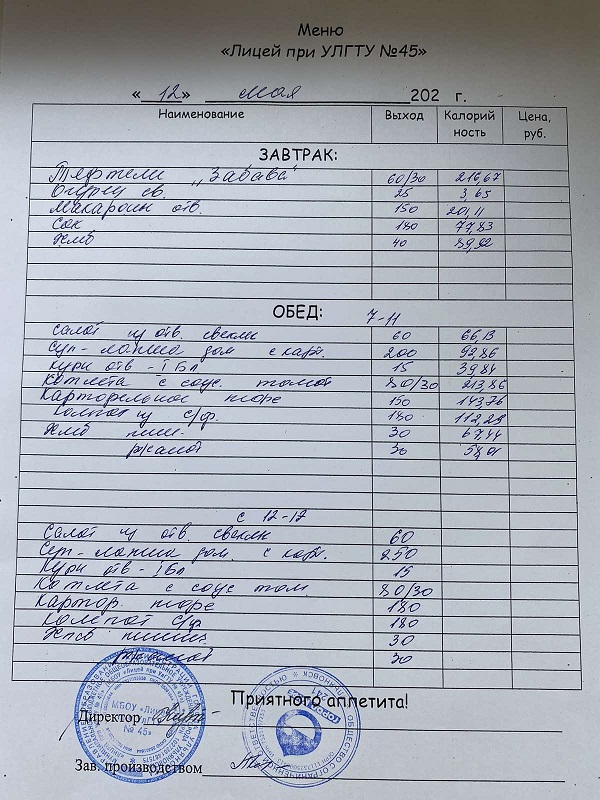 Меню
«Лицей при УЛГТУ №45»
«12» мая 202 г.
Наименование Выход Калорийность Цена, руб.
ЗАВТРАК:
Тефтели „Забава" 60/30 216,67
Огурец св. 25 3,65
Макарон отв. 150 20,11
Сок 180 77,83
Хлеб 40 89,92
ОБЕД: 7-11
Салат из отв. свеклы 60 66,13
Суп-лапша дом. с карт. 200 92,86
Куры отв - I бл 15 39,84
Котлета с соус томат 80/30 213,86
Картофельное пюре 150 143,76
Компот из с/ф. 180 112,29
Хлеб пшен. 30 67,44
ржаной 30
с 12-17
Салат из отв. свеклы 60
Суп-лапша дом. с карт. 250
Куры отв - I бл 15
Котлета с соус том 80/30
Картоф. пюре 180
Компот с/ф 180
Хлеб пшен. 30
ржаной 30
Приятного аппетита!
Директор
МБОУ «Лицей при УлГТУ № 45»
Зав. производством